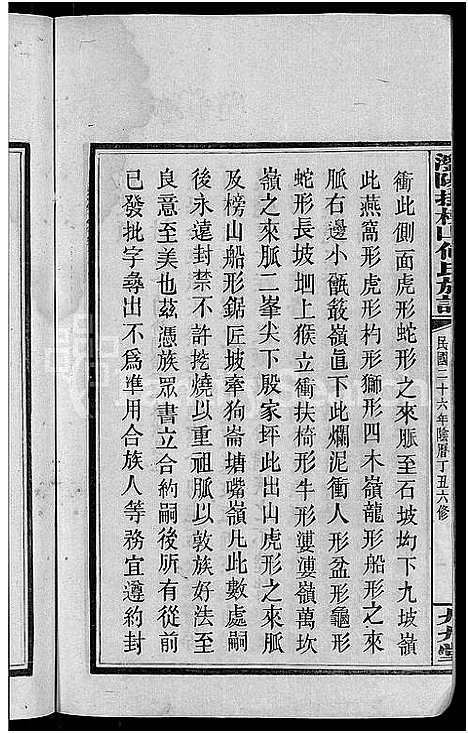 衝此側面虎形蛇形之來脈至石坡坳下九坡嶺
此燕窩形虎形杓形獅形四木嶺龍形船形之來
脈右邊小甑叢嶺直下此爛泥衝人形盆形龜形
蛇形長坡堌上猴立衝扶椅形牛形漊漊嶺萬坎
嶺之來脈二峯尖下殷家坪此出山虎形之來脈
及榜山船形鋸匠坡牽狗崙塘嘴嶺凡此數處嗣
後永遠封禁不許挖燒以重祖脈以敦族好法至
良意至美也茲憑族眾書立合約嗣後所有從前
已發批字尋出不爲準用合族人等務宜遵約封
何氏族譜
民國二十六年陰曆丁丑六修